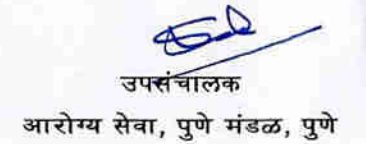 उपसंचालक
आरोग्य सेवा, पुणे मंडळ, पुणे